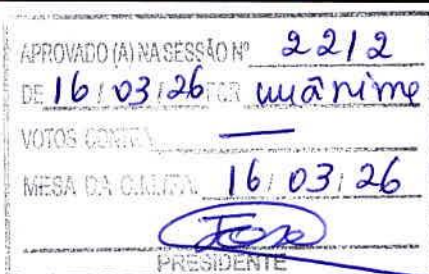 APROVADO (A) NA SESSÃO Nº 2212
DE 16/03/26 POR unânime
VOTOS CONTRA —
MESA DA CÂMARA 16/03/26
PRESIDENTE